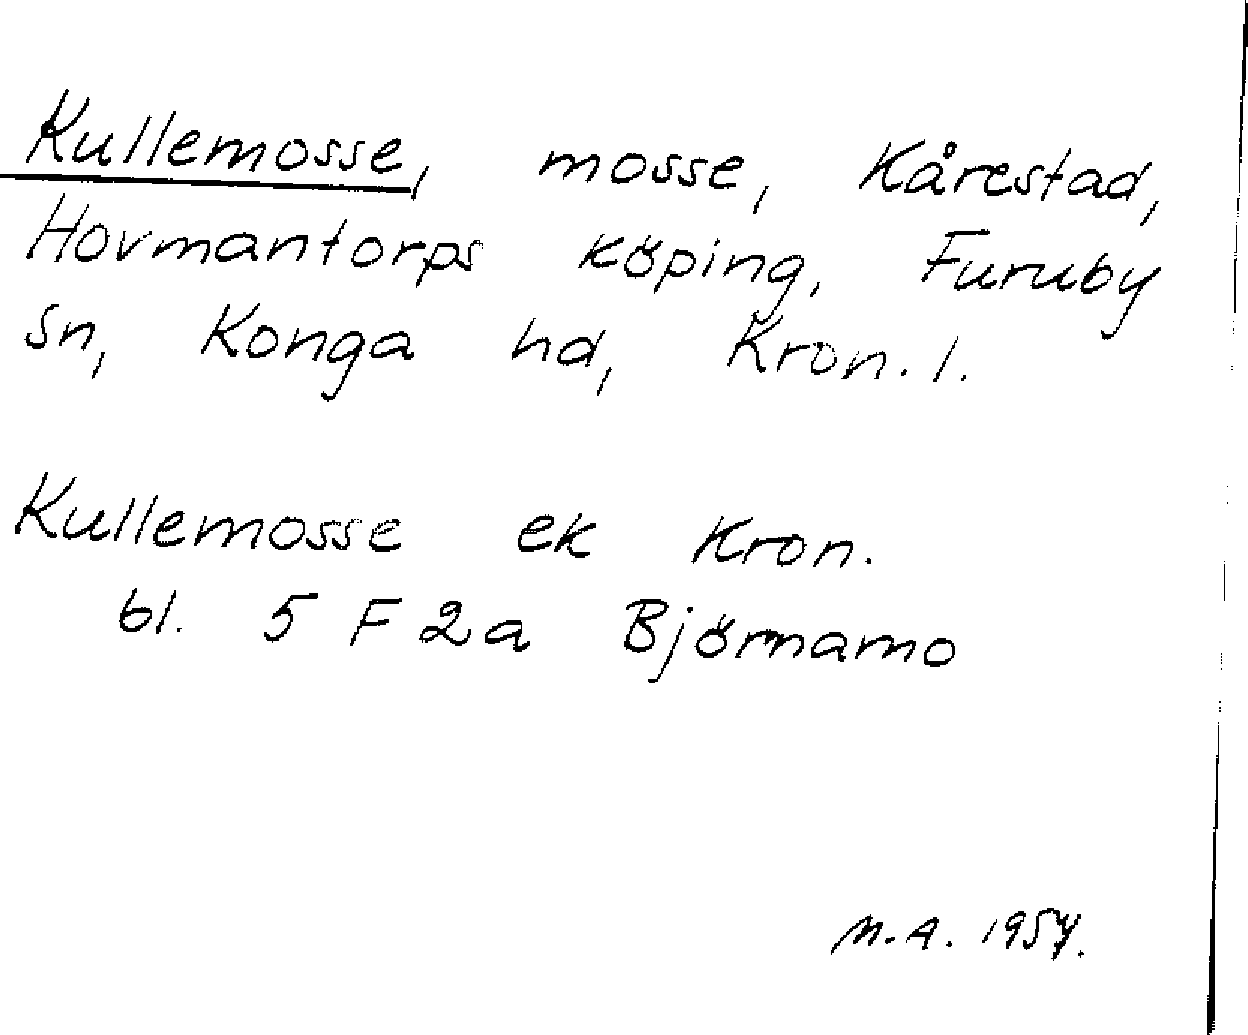 Kullemosse, mosse, Kårestad,
Hovmantorps köping, Furuby
sn, Konga hd, Kron. l.
Kullemosse ek Kron.
bl. 5 F 2a Björnamo
M.A. 1954.